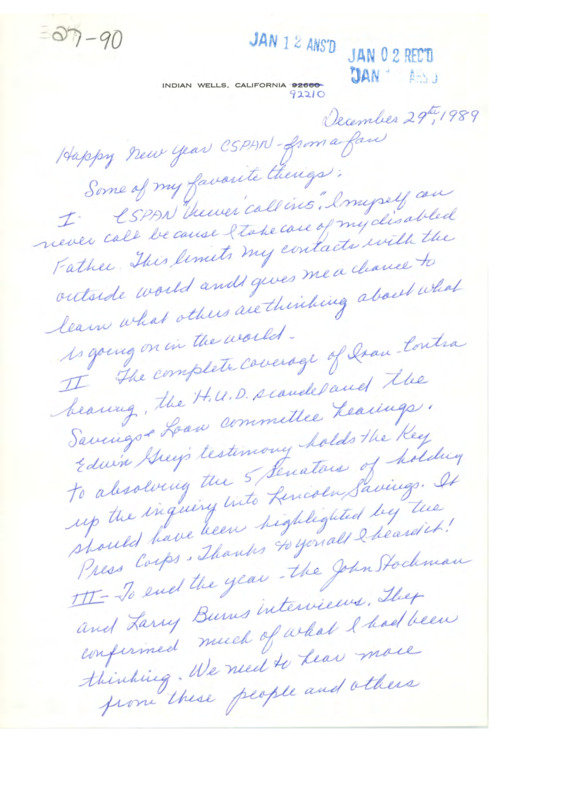 27-90
JAN 12 ANS'D
JAN 02 REC'D
JAN ANS'D
INDIAN WELLS, CALIFORNIA 92660
92210
December 29th, 1989
Happy New Year CSPAN - from a fan
Some of my favorite things:
I. CSPAN "Viewer call ins". I myself can
never call because I take care of my disabled
Father. This limits my contacts with the
outside world and gives me a chance to
learn what others are thinking about what
is going on in the world.
II The complete coverage of Iran-Contra
hearing, the H.U.D. scandel and the
Savings & Loan committee hearings.
Edwin Grey's testimony holds the Key
to absolving the 5 Senators of holding
up the inquiry into Lincoln Savings. It
should have been highlighted by the
Press Corps. Thanks to you all I heard it!
III - To end the year - the John Stockman
and Larry Burns interviews. They
confirmed much of what I had been
thinking. We need to hear more
from these people and others